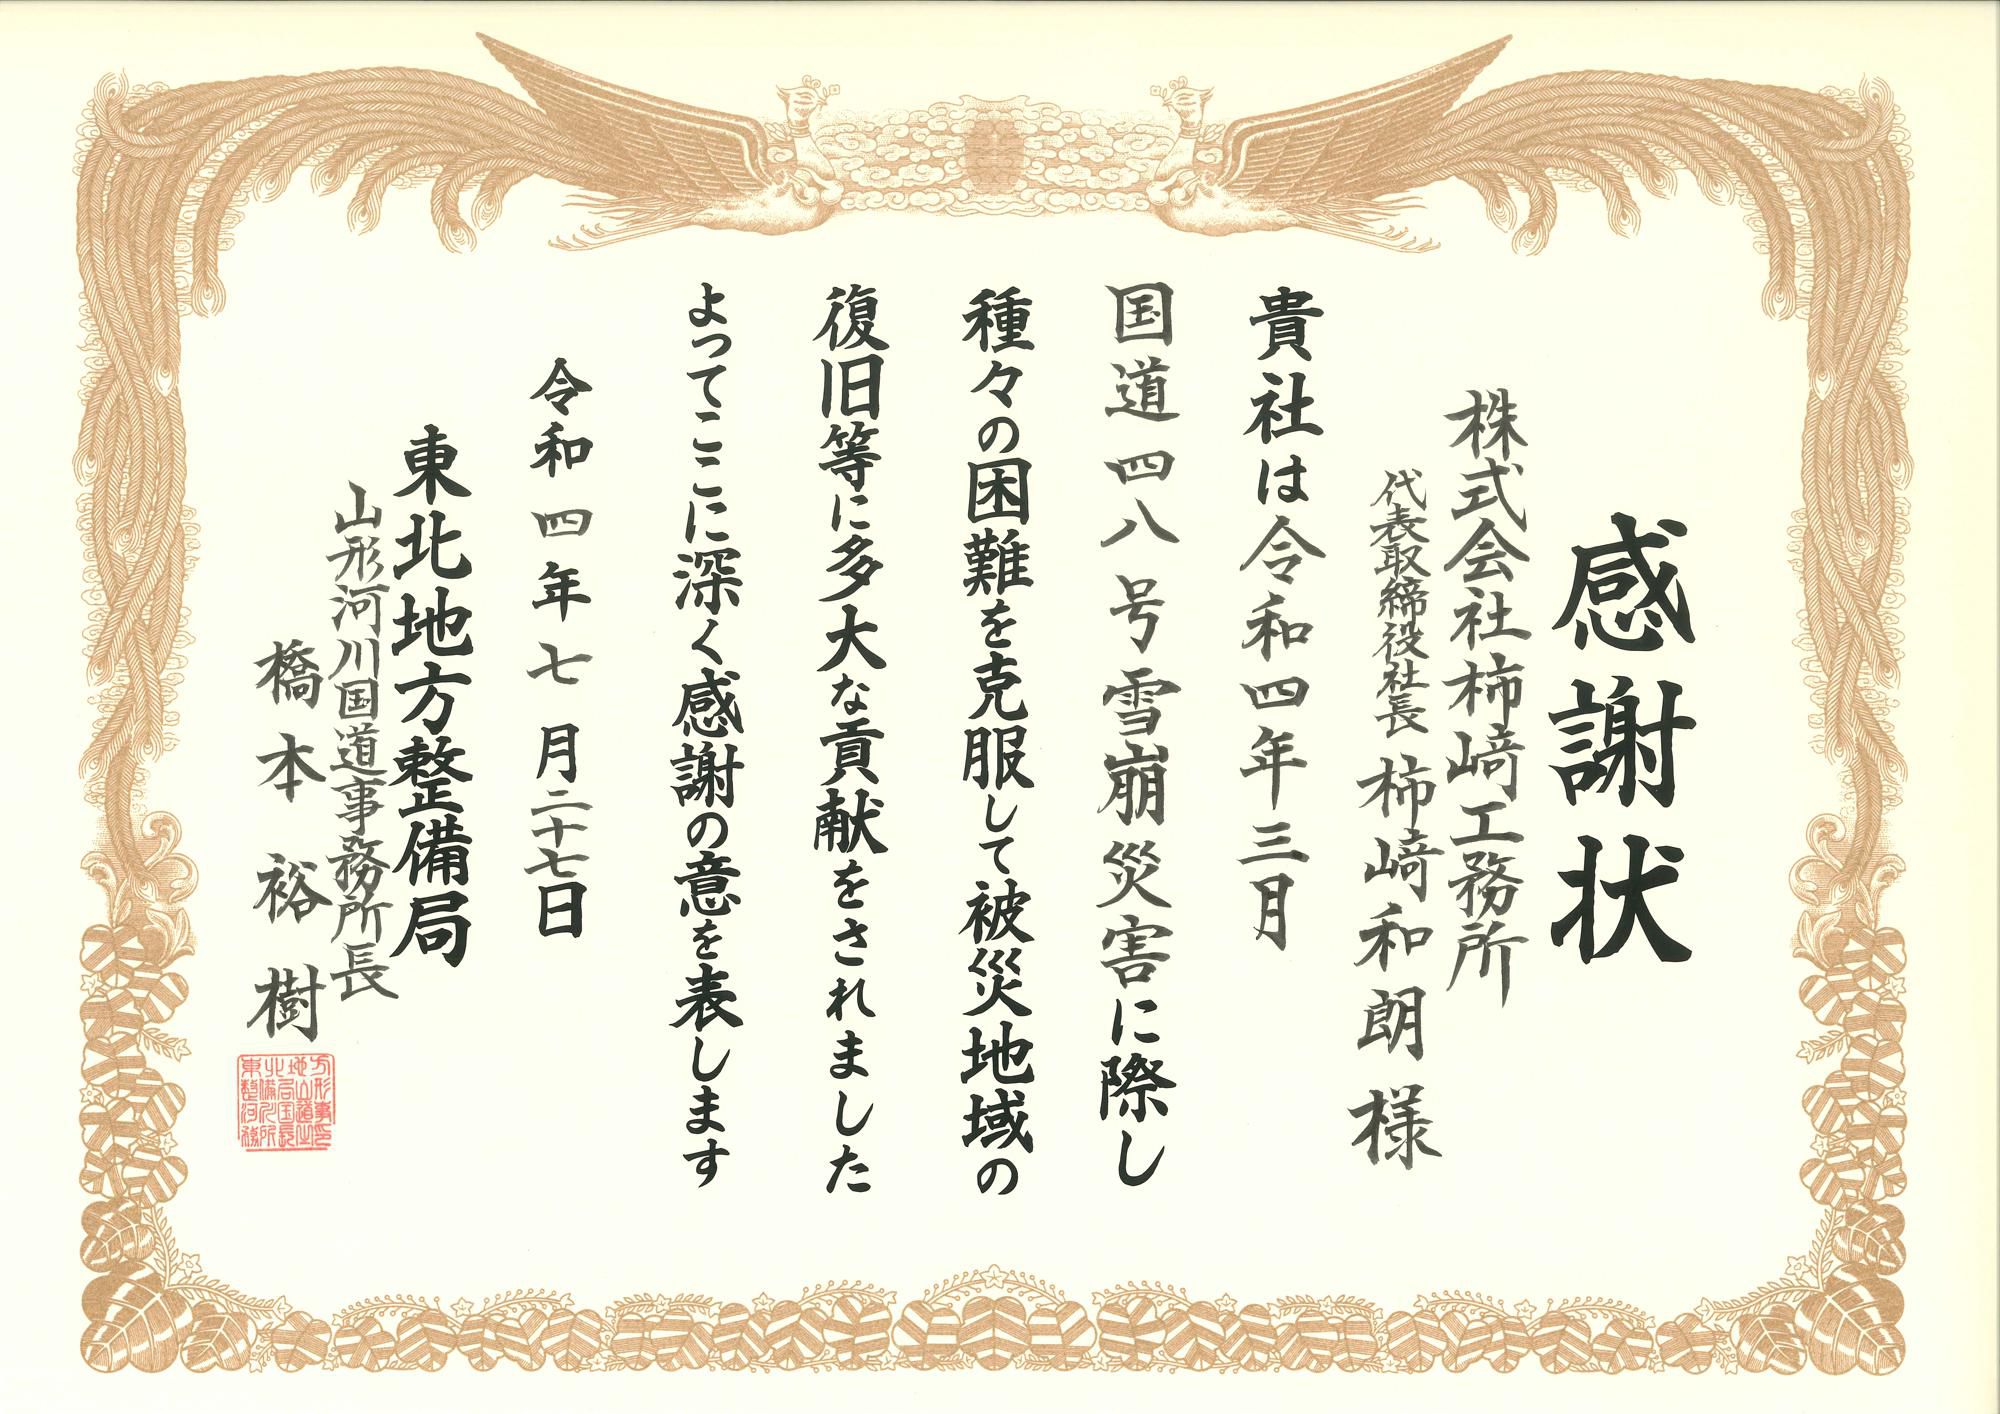 感謝状
株式会社柿﨑工務所
代表取締役社長 柿﨑和朗 様
貴社は令和四年三月
国道四八号雪崩災害に際し
種々の困難を克服して被災地域の
復旧等に多大な貢献をされました
よってここに深く感謝の意を表します
令和四年七月二十七日
東北地方整備局
山形河川国道事務所長
橋本裕樹